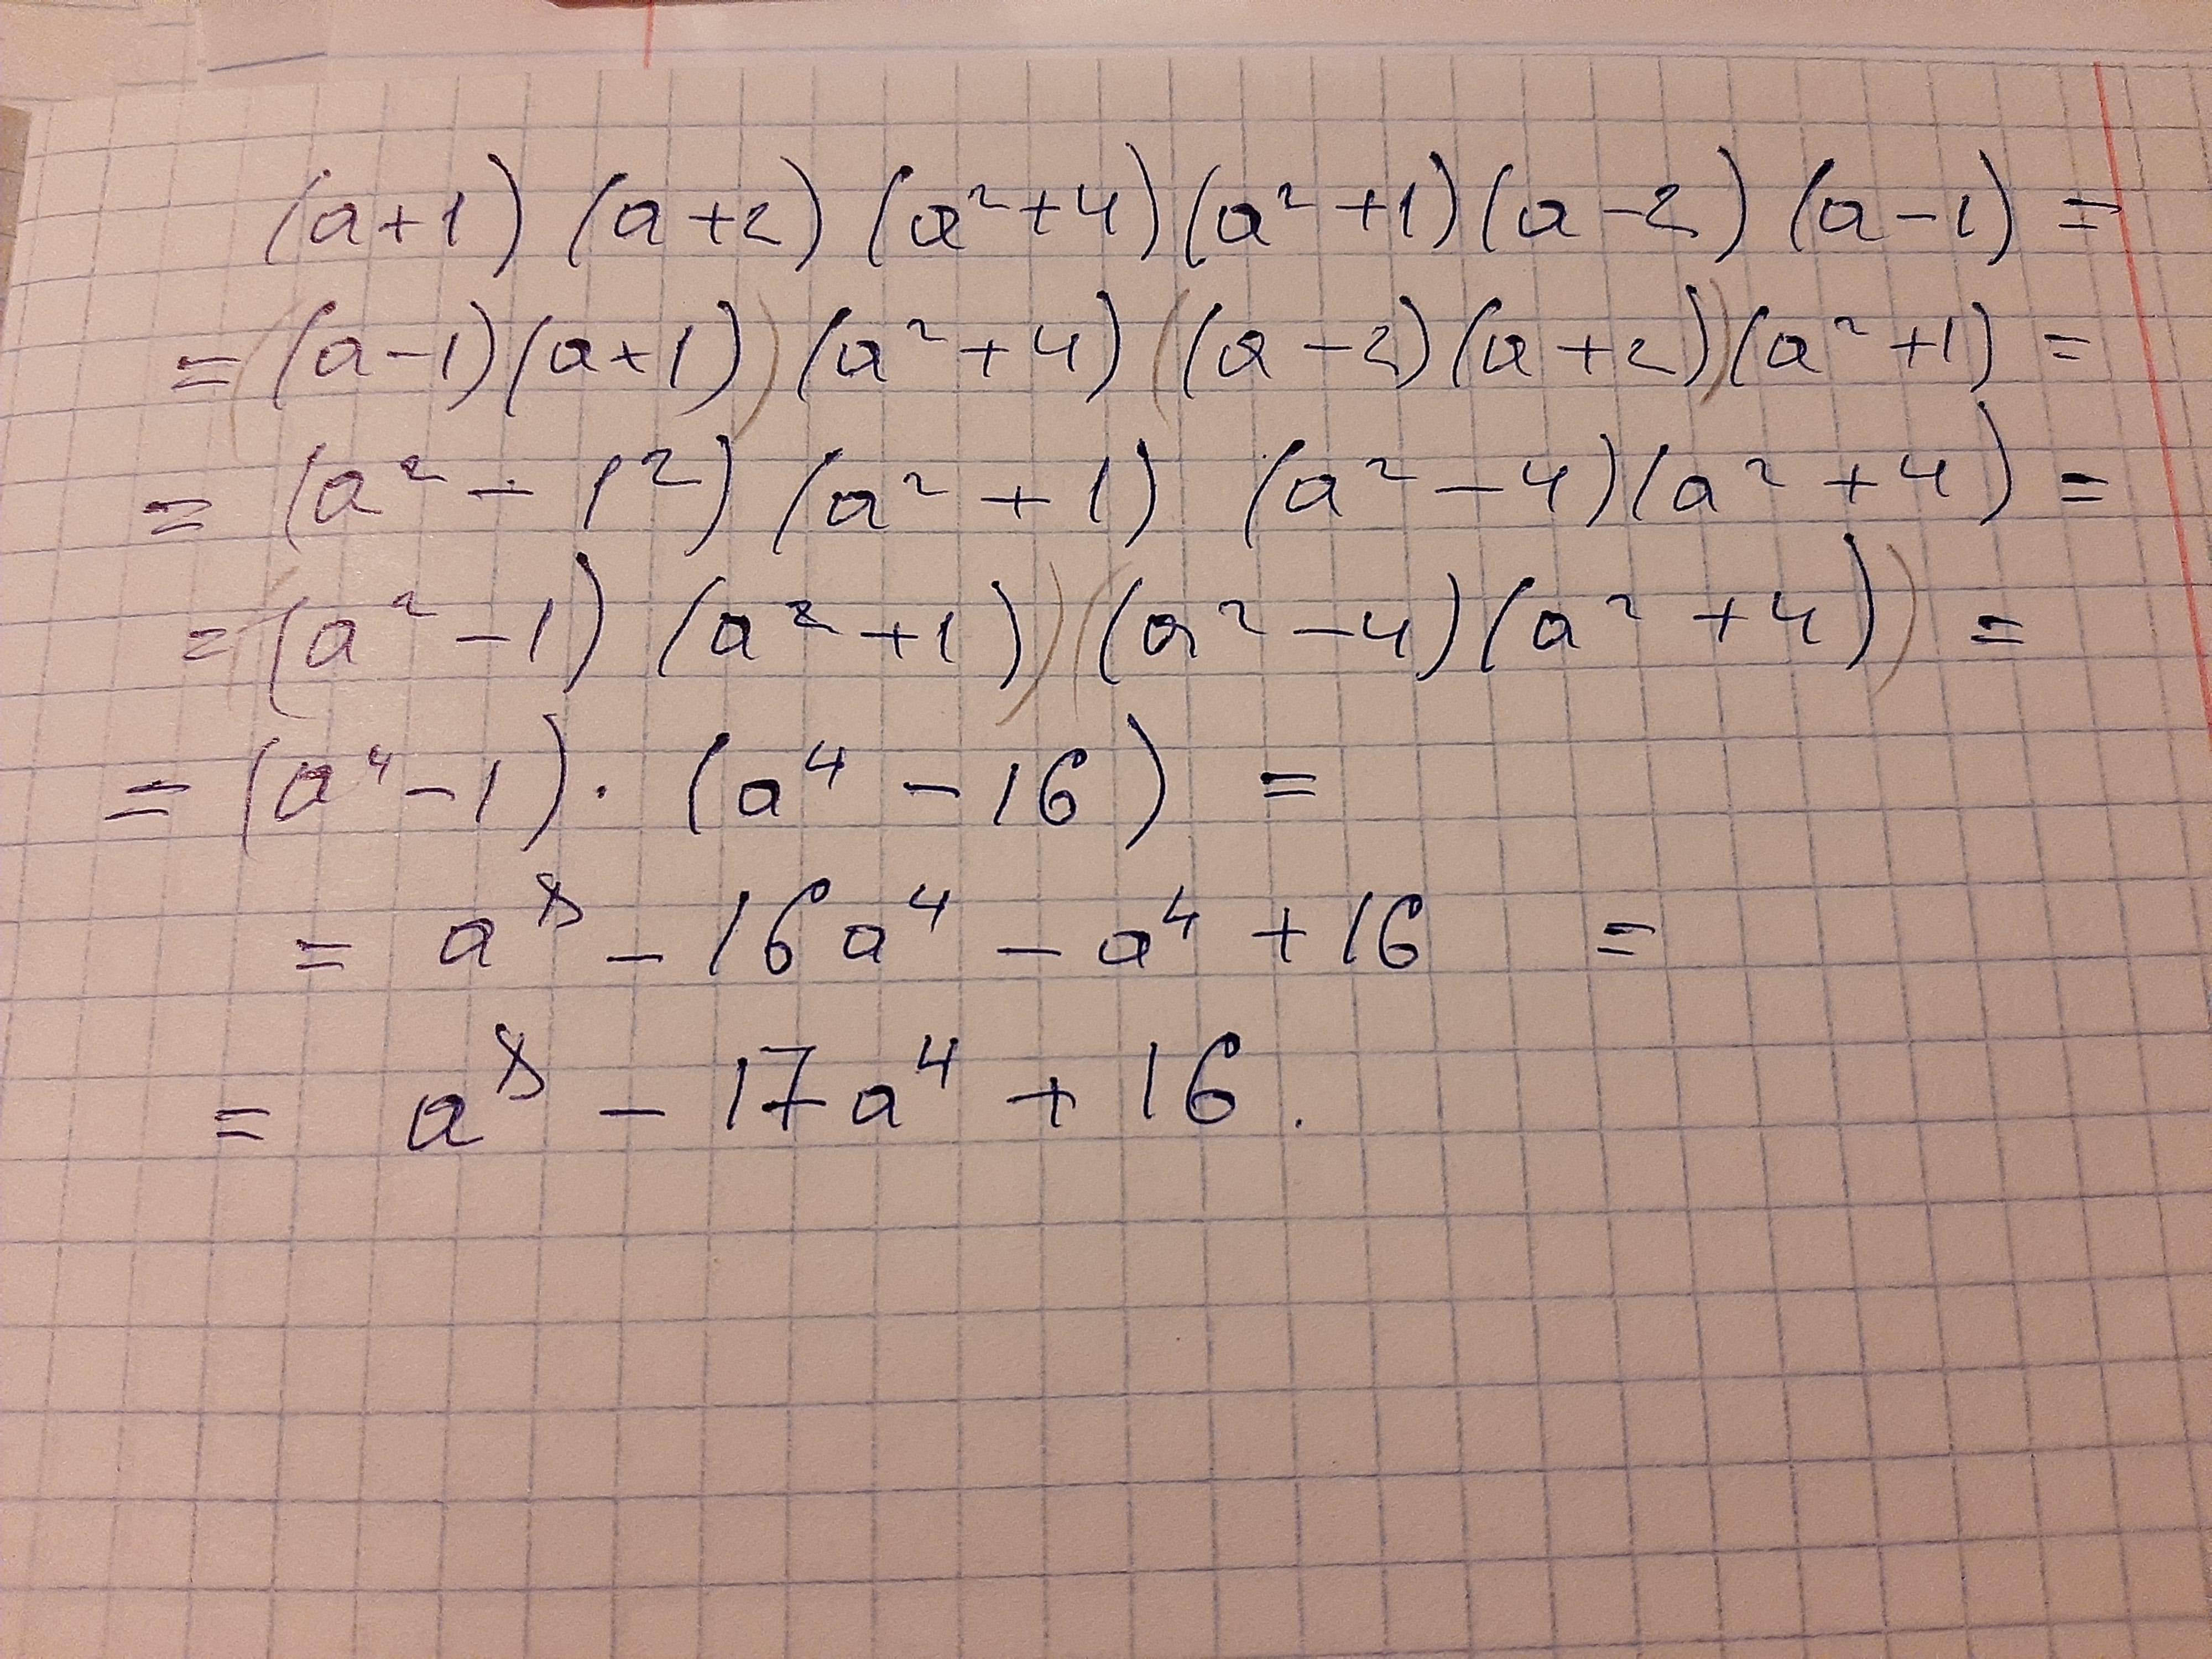 (a+1)(a+2)(a²+4)(a²+1)(a-2)(a-1)=
=((a-1)(a+1))(a²+4)((a-2)(a+2))(a²+1)=
=(a²-1²)(a²+1)(a²-4)(a²+4)=
=((a²-1)(a²+1))((a²-4)(a²+4))=
=(a⁴-1)·(a⁴-16)=
=a⁸-16a⁴-a⁴+16=
=a⁸-17a⁴+16.